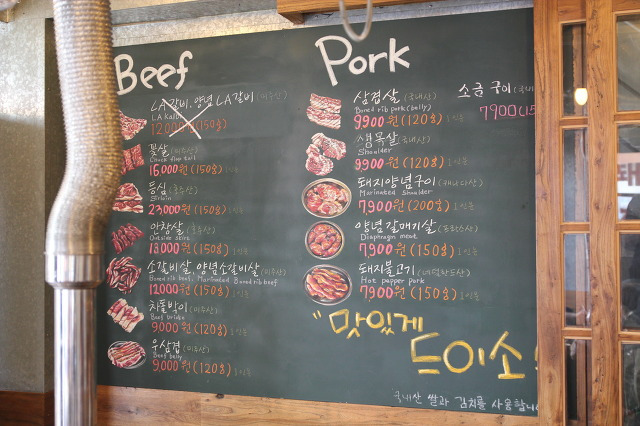 Beef
LA갈비.양념 LA갈비 (미주산)
LA Kalbi
12000원 (150g)
꽃살 (미주산)
Chuck flap tail
16000원 (150g)
등심 (호주산)
Sirloin
23000원 (150g)
안창살 (호주산)
Outside skirt
18000원 (150g)
소갈비살, 양념소갈비살 (미주산)
Boned rib beef, Marinated Boned rib beef
12000원 (150g) 1인분
차돌박이 (미주산)
Beef brisket
9000원 (120g) 1인분
우삼겹 (미주산)
Beef belly
9,000원 (120g) 1인분
Pork
삼겹살 (국내산)
Boned rib pork (belly)
9,900원 (120g) 1인분
생목살 (국내산)
Shoulder
9900원 (120g) 1인분
돼지양념구이 (캐나다산)
Marinated shoulder
7,900원 (200g) 1인분
양념갈매기살 (프랑스산)
Diaphragm meat
7,900원 (150g) 1인분
돼지불고기 (네덜란드산)
Hot pepper pork
7,900원 (150g) 1인분
소금구이 (국내
7900원 (15
"맛있게
드이소!
국내산 쌀과 김치를 사용합니
돼